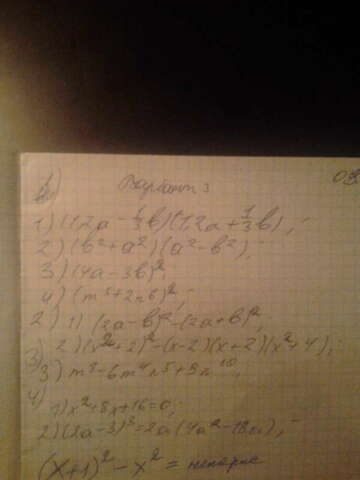 1)
Вариант 3
1) (1,2a - 1/3b)(1,2a + 1/3b);
2) (b² + a²)(a² - b²);
3) (4a - 3b)²;
4) (m⁵ + 2n⁶)²;
2) 1) (2a - b)² - (2a + b)²;
2) (x² + 2)² - (x - 2)(x + 2)(x² + 4);
3) 3) m⁸ - 6m⁴n⁵ + 9n¹⁰,
4)
1) x² + 8x + 16 = 0;
2) (2a - 3)³ = 2a(4a² - 18a);
(x + 1)² - x² = непарне